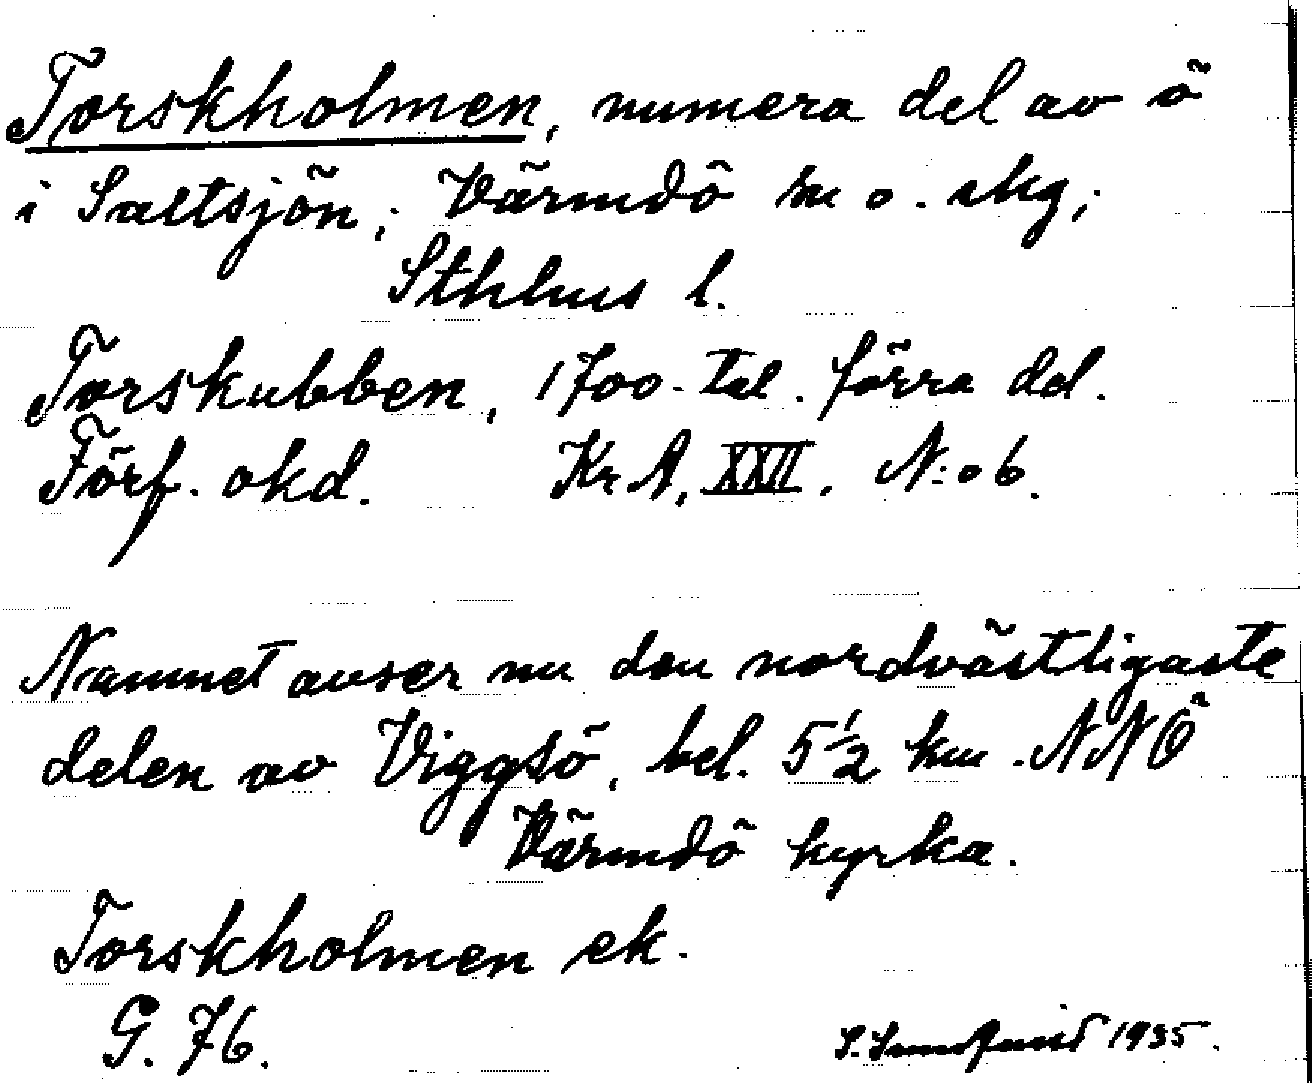 Torskholmen, numera del av ö
i Saltsjön; Värmdö sn o. skg;
Sthlms l.
Torskubben, 1700-tal. förra del.
Förf. okd. KrA, XXII. N:o 6.
Namnet avser nu den nordvästligaste
delen av Viggsö, bel. 5½ km NNÖ
Värmdö kyrka.
Torskholmen ek.
G. 76.
1935.